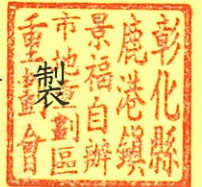 彰化縣
鹿港鎮
景福自辦
市地重劃區
重劃會
製